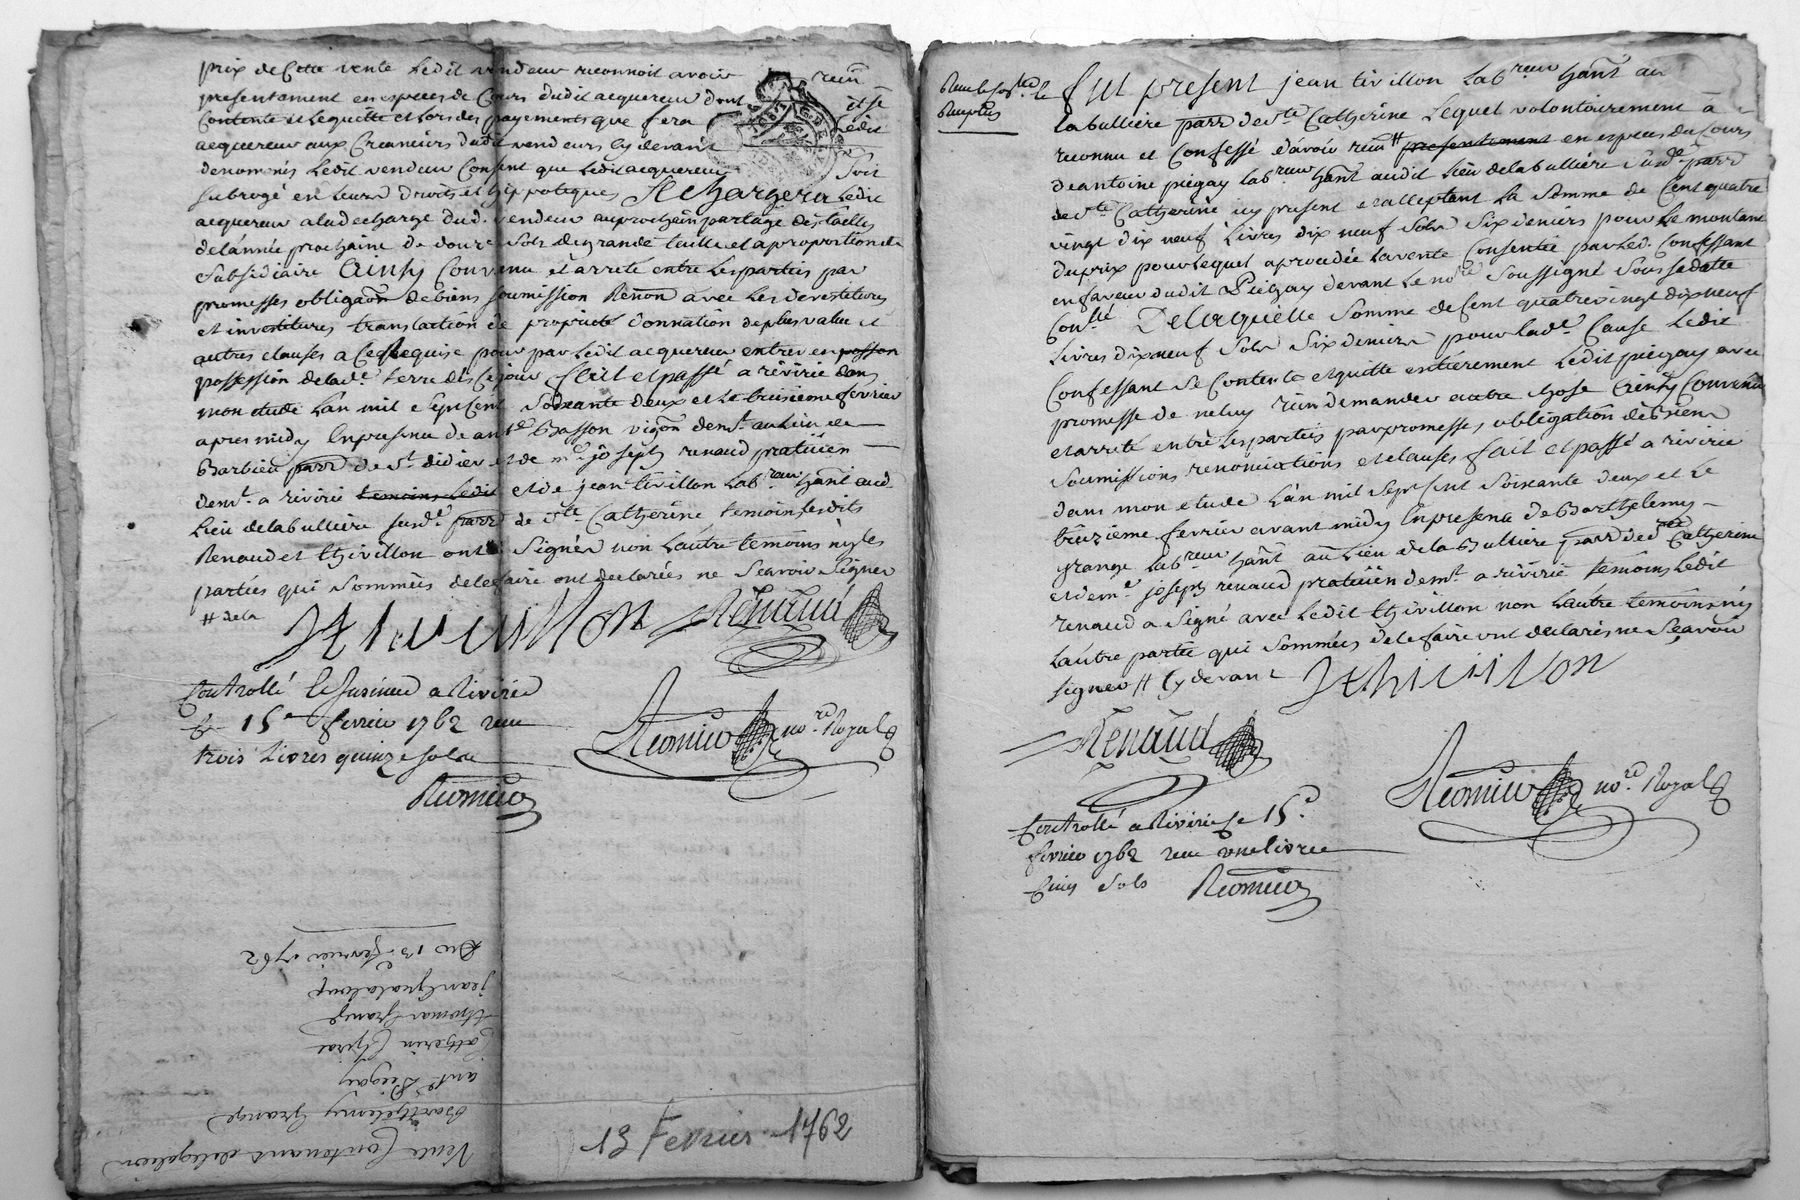 prix de Cette vente Ledit vendeur reconnoit avoir reçu
presentement en especes de Cours dudit acquereur dont il se
Contente et Lequitte et Lors des payements que fera Ledit
acquereur aux Creanciers dudit vendeurs Cy devant
denomés Ledit vendeur Consent que Ledit acquereur Soit
subrogé en Leurs Droits et hippoteques Se Chargera Ledit
acquereur a la decharge dud. vendeur au prochain partage des tailles
de L'année prochaine de douze Sols de grande taille et a proportion de
Subsidiaire Cainsy Convenu et arreté entre Les parties par
promesses obligaõn de biens soumission Renõn avec Les devestitures
et investitures translation de proprieté donnation de plus value et
autres clauses a Ce Requise pour par Ledit acquereur entrer en posson
possession de lad.e terre dès Ce jour fait et passé a riverie dans
mon etude L'an mil Sept Cent Soixante deux et Le treizieme fevrier
apres midy En presence de ant.e Basson vigõn dem.t au Lieu de
Barbieu parr de S.t didier et de m.e joseph renaud praticien
dem.t a riverie temoins Ledit et de jean tivillon Lab.reur hant aud.
Lieu de la bulliere susd.e parr de S.te Catherine temoins Lesdits
Renaud et thivillon ont Signés non L'autre temoins ny Les
parties qui Sommées de le faire ont declarées ne Scavoir Signer
# de la
J thivillon Renaud
Controllé a Riverie
Le 15e fevrier 1762 reçu
trois Livres quinze sols
Reomieu no.re Royal
Reomieu
Du 13e fevrier 1762
jean
thomas Grange
Catherin
ant.e Piegay
Barthelemy Grange
Vente Contenant delegation
13 Fevrier 1762
Fut present jean tivillon Lab.reur hant au
La bulliere parr de S.te Catherine Lequel volontairement a
reconnu et Confessé d'avoir reçu # presentement en especes du Cours
de antoine piegay Lab.reur hant audit Lieu de la bulliere Susd.e parr
de S.te Catherine icy present et acceptant La Somme de Cent quatre
vingt dix neuf Livres dix neuf Sols Six deniers pour Le montant
du prix pour Lequel a procedée La vente Consentie par Led. Confessant
en faveur dudit Piegay devant Le no.re Soussigné Sous Sa datte
Con.lé De Laquelle Somme de Cent quatre vingt dix neuf
Livres dix neuf Sols Six deniers pour lad.e Cause Ledit
Confessant Se Contente et quitte entierement Ledit piegay avec
promesse de ne luy rien demander autre chose Cainsy Convenu
et arreté entre Les parties par promesses, obligation de Biens
Soumissions renonciations et clauses fait et passé a riverie
dans mon etude L'an mil Sept Cent Soixante deux et Le
treizieme fevrier avant midy En presence de Barthelemy
grange Lab.reur hant au Lieu de la Bulliere parr de S.te Catherine
et de m.e joseph renaud praticien dem.t a riverie temoins Ledit
renaud a Signé avec Ledit thivillon non L'autre temoins ny
L'autre partie qui Sommées de le faire ont declarés ne Sçavoir
signer # Cy devant J thivillon
Renaud
Reomieu no.re Royal
Controllé a Riverie Le 15e
fevrier 1762 reçu une livre
Cinq Sols Reomieu